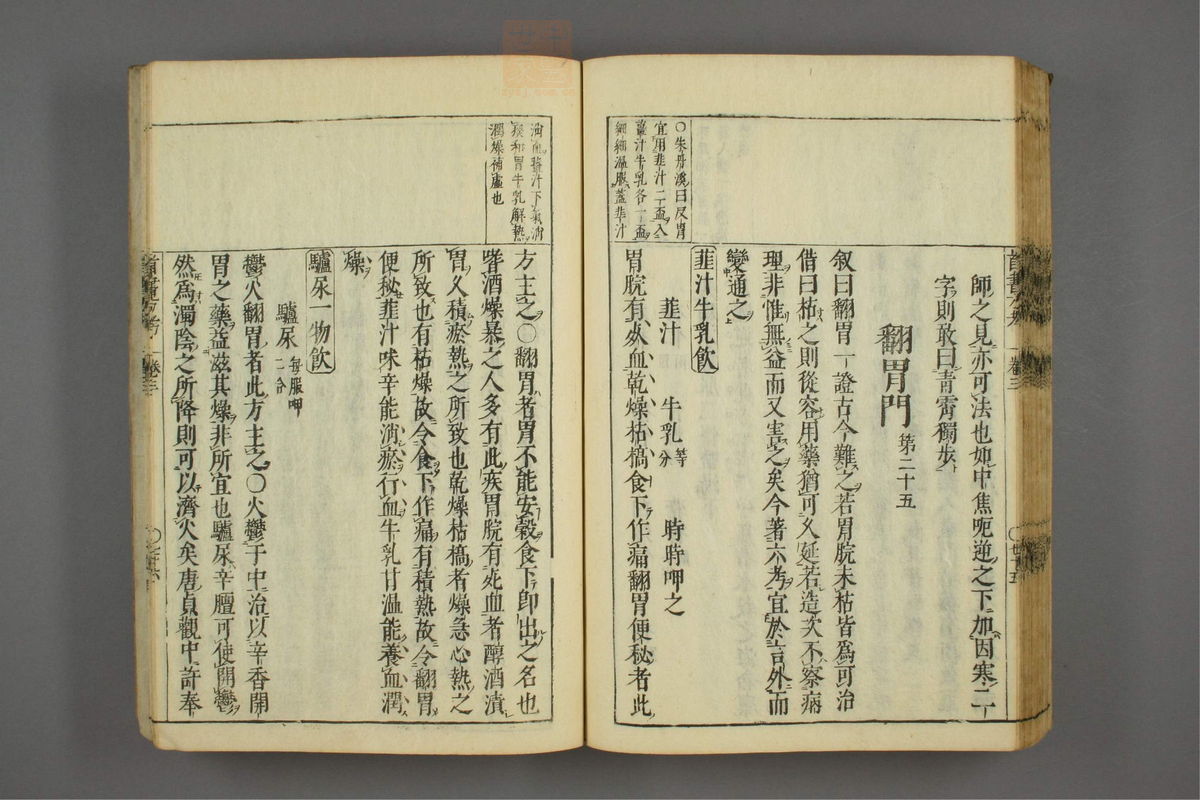 ○朱丹溪曰反胃
宜用韮汁二盃入
薑汁牛乳各一盃
細細溫服蓋韮汁
師之見亦可法也如中焦呃逆之下加因寒二
字則敢曰青霄獨步
翻胃門第二十五
叙曰翻胃一證古今難之若胃脘未枯皆為可治
借曰枯之則從容用藥猶可久延若造次不察病
理非惟無益而又害之矣今著六考宜於言外而
變通之
韮汁牛乳飲
韮汁 牛乳等分 時時呷之
胃脘有死血乾燥枯槁食下作痛翻胃便秘者此
首書方考 卷三
消血薑汁下氣消
痰和胃牛乳解熱
潤燥補虛也
方主之○翻胃者胃不能安穀食下即出之名也
嗜酒燥暴之人多有此疾胃脘有死血者醇酒漬
胃久積瘀熱之所致也乾燥枯槁者燥急心熱之
所致也有枯燥故令食下作痛有積熱故令翻胃
便秘韮汁味辛能消瘀行血牛乳甘溫能養血潤
燥
驢尿一物飲
驢尿每服呷二合
鬱火翻胃者此方主之○火鬱于中治以辛香開
胃之藥益滋其燥非所宜也驢尿辛膻可使開鬱
然為濁陰之所降則可以濟火矣唐貞觀中許奉
首書方考 卷三